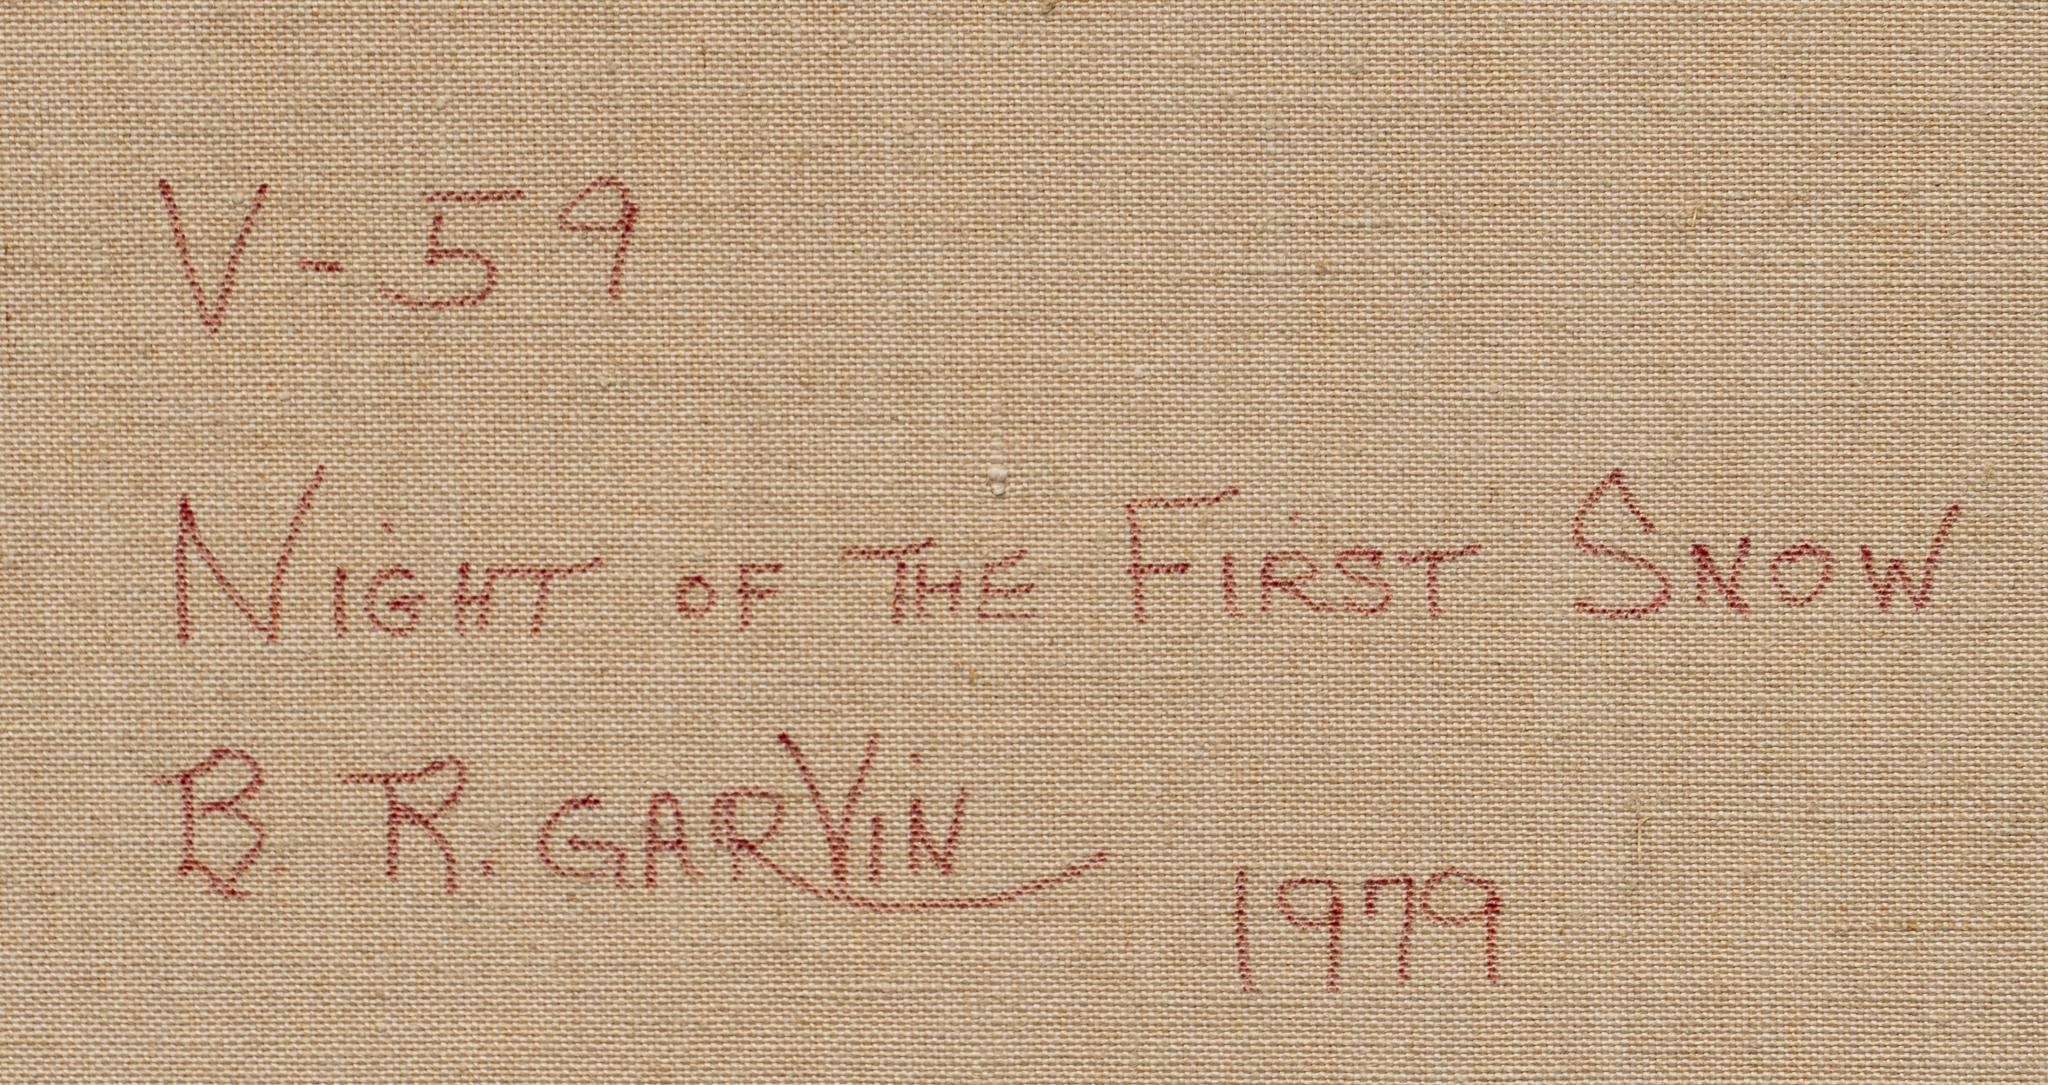 V-59
NIGHT OF THE FIRST SNOW
B. R. GARVIN
1979